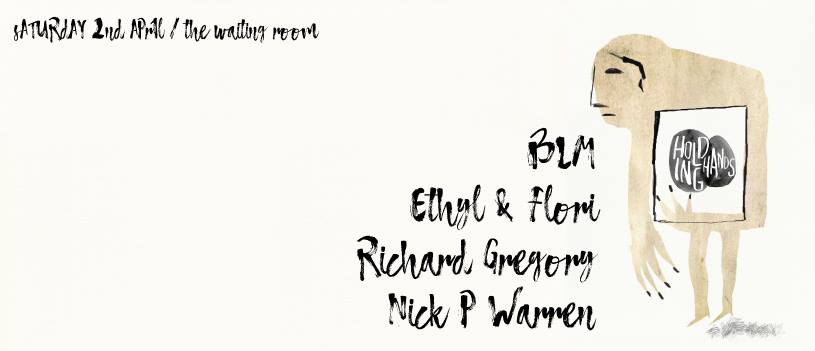 sATURdAY 2nd APril / the waiting room
BLM
Ethyl & Flori
Richard Gregory
Nick P Warren
HOLD
ING
HANDS